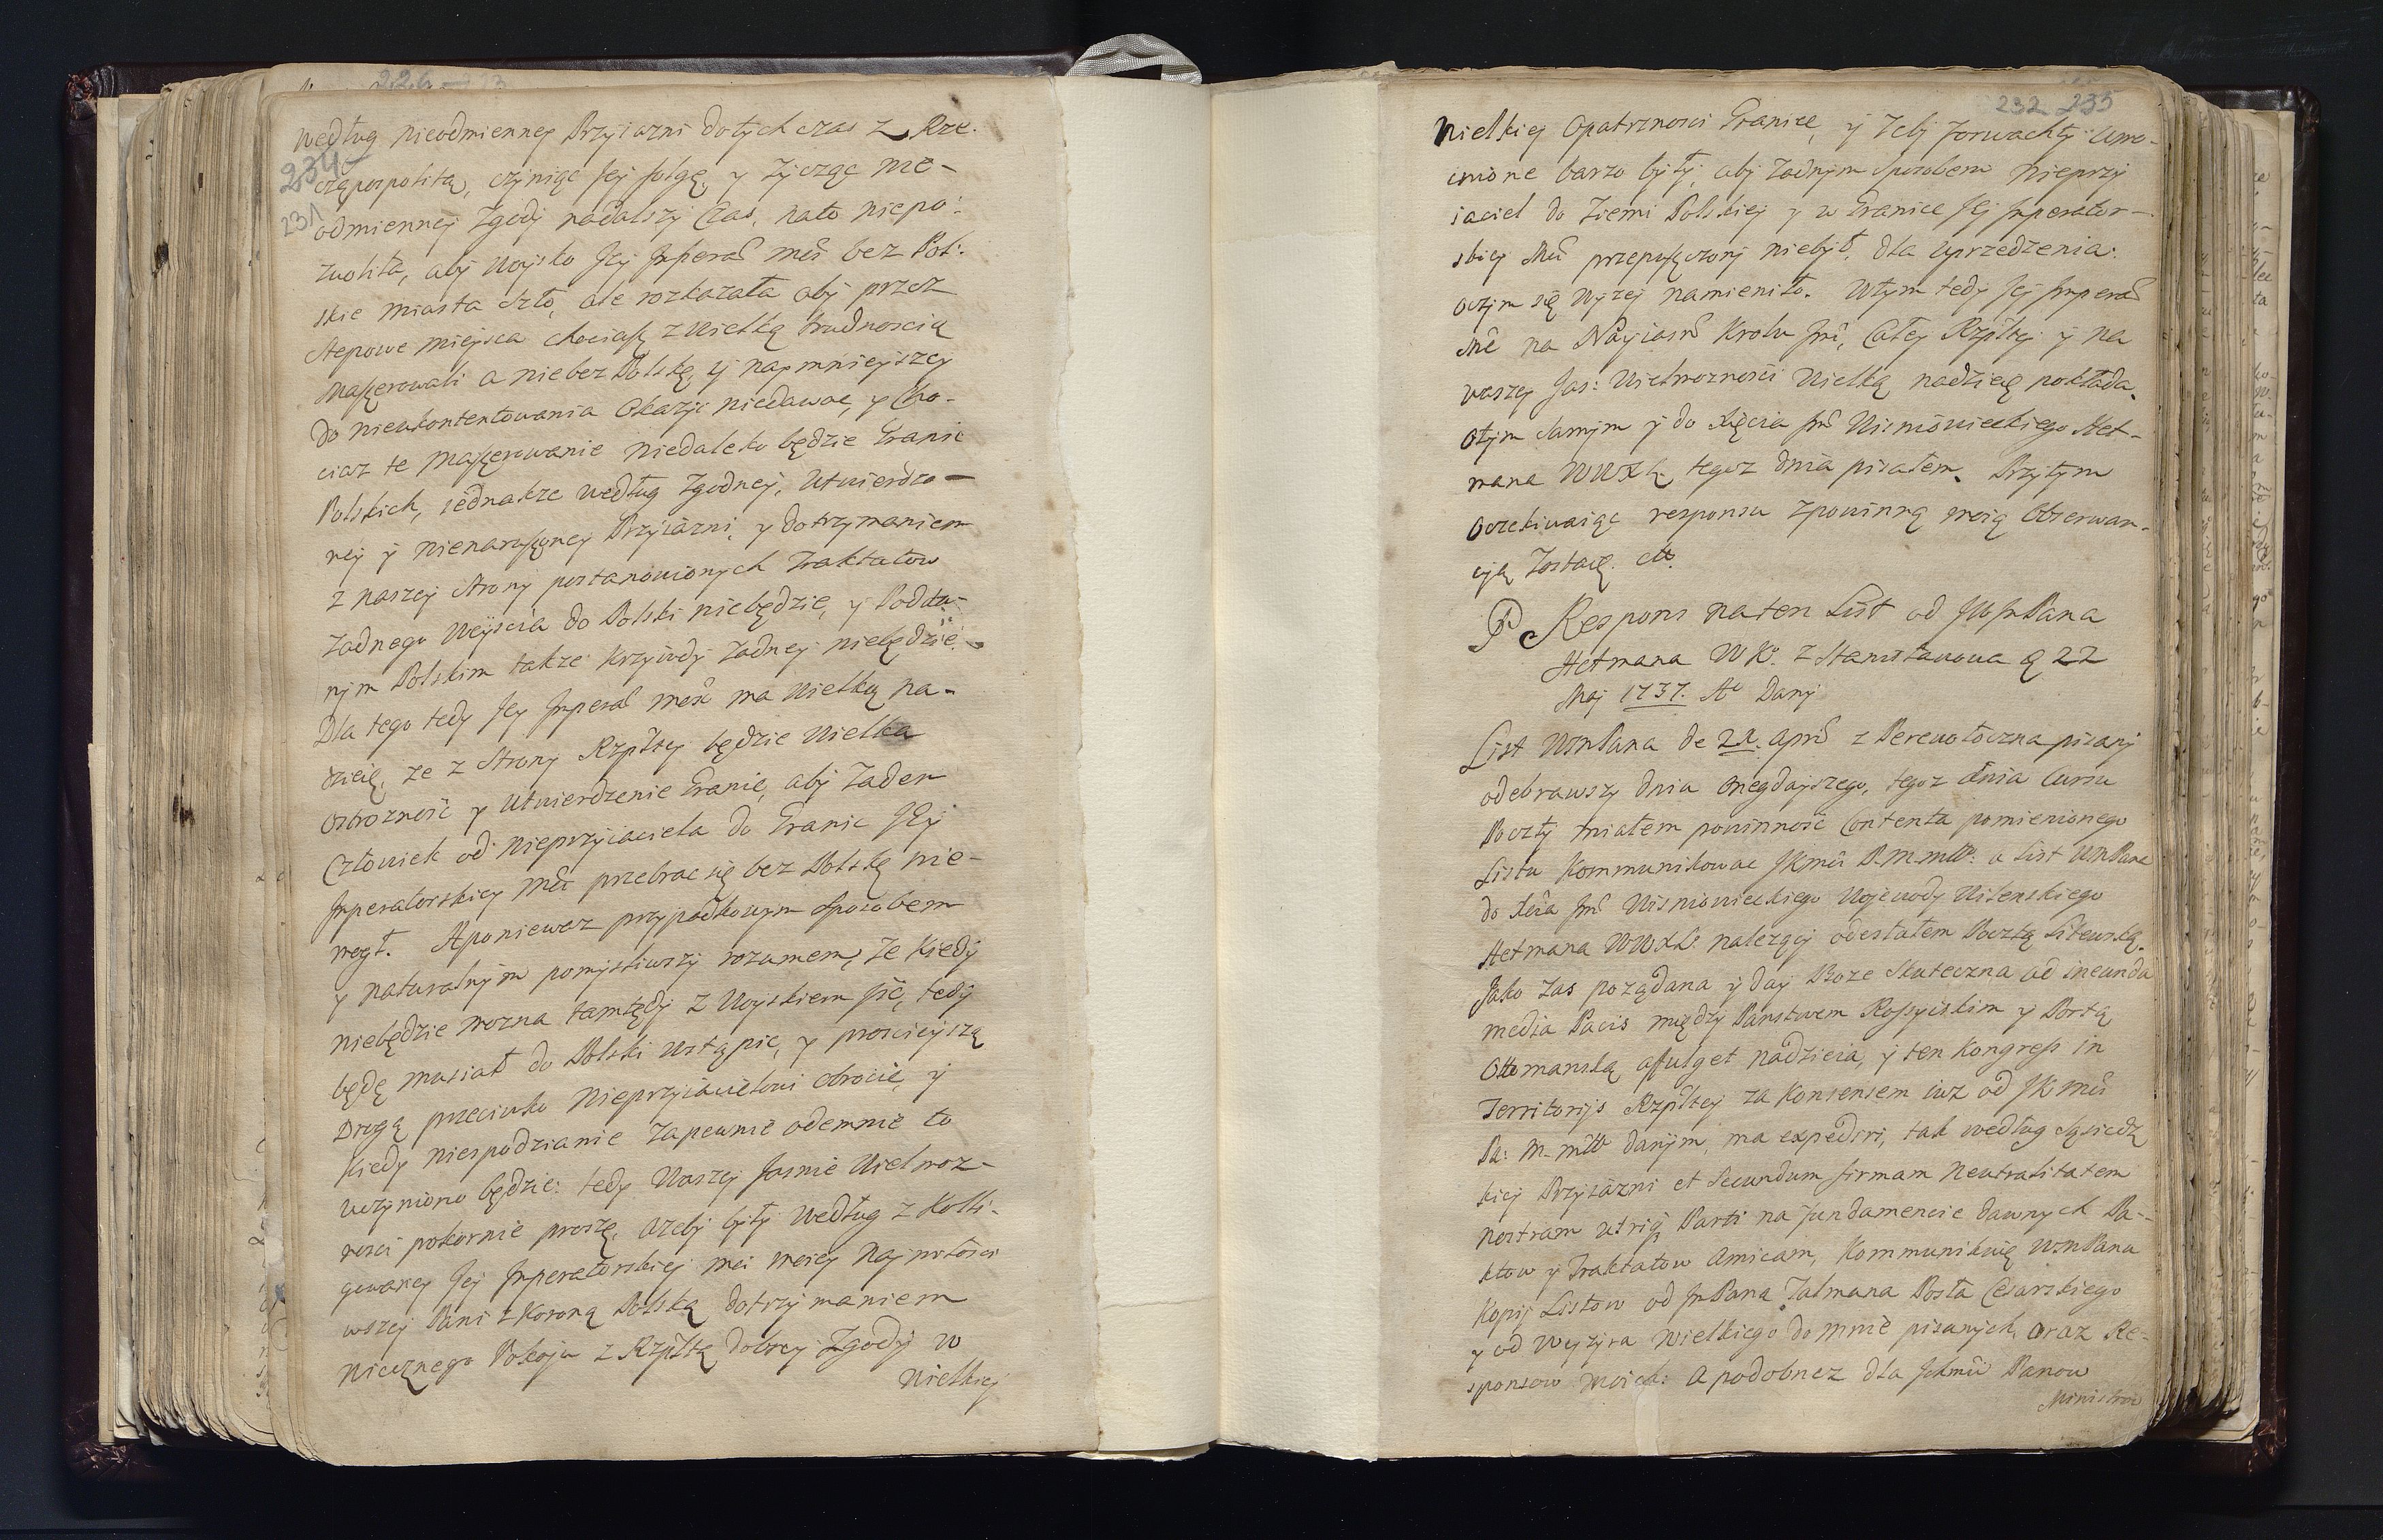 226 3
Według nieodmienney Przyiazni dotychczas z Rze-
234
cząpospolitą, czyniąc Jey folgę, y życząc nie-
231
odmienney Zgody nadalszy Czas, nato niepo-
zwoliła, aby Woysko Jey Imperał mći bez Pol:
skie Miasta szło, ale rozkazała aby przez
stepowe miejsca chociasz z wielką trudnoscią
maszerowali a niebez Polskę, y naymnieyszey
do nieukontentowania Okazyi niedawac, y Cho-
ciaz te maszerowanie niedaleko będzie Granic
Polskich, iednakze według Zgodney, Utwierdzo-
ney y nienaruszoney Przyiazni, y dotrzymaniem
z naszey strony postanowionych Traktatow
Zadnego Weyscia do Polski niebędzie, y Podda-
nym Polskim takze Krzywdy Zadney niebędzie.
Dla tego tedy Jey Imperał mość ma Wielką na-
dzieię, ze z strony Rzpltey będzie Wielka
ostroznosć y Utwierdzenie Granic, aby Zaden
Człowiek od Nieprzyiaciela do Granic Jey
Imperatorskiey Mći przebrac się bez Polskę nie-
mogł. A poniewaz przypadkowym sposobem
y naturalnym pomysliwszy rozumem, Ze Kiedy
niebędzie mozna tamtędy z Woyskiem iść, tedy
będę musiał do Polski Ustąpic, y prosciejszą
Drogą przeciwko Nieprzyiacielowi obrocić, y
Kiedy niespodzianie Zapewnie odemnie to
uczyniono będzie: tedy Waszey Jasnie Wielmoz-
nosci pokornie proszę, azeby były według z Kolli-
gowaney Jey Imperatorskiey mći moiey Naymiłości-
wszey Pani z Koroną Polską dotrzymaniem
Wiecznego Pokoju z Rzpltą dobrey Zgody w
Wielkiey
232 235
Wielkiey Opatrznosci Granice, y Zeby Forwachty Umo-
cnione barzo były, aby Zadnym sposobem Nieprzy
iaciel do Ziemi Polskiey y w Granice Jey Imperator-
skiey Mći przepuszczony niebył, dla uprzedzenia:
oczym się wyzey namieniło. Wtym tedy Jey Imperał
Mć na Nayiasń Krolu Jmć, Całey Rzpltey y na
waszey Jas: Wielmoznosci Wielką nadzieię pokłada.
Otym samym y do Xięcia Jmć Wisniowieckiego Het-
mana WWXL tegoz dnia pisałem. Przytym
Oczekiwaiąc responsu z powinną moią Obserwan-
cyą Zostaię. etc.
Respons na ten List od JWJmPana
Hetmana WK. z Stanisławowa d 22
Maj 1737. Ao Dany
List WmPana de 22. apri z Perewołoczna pisany
odebrawszy dnia onegdayszego, tegoz dnia Cursu
Poczty miałem powinność Contenta pomienionego
Listu Kommunikowac JKmći P. M. młł: a List WmPana
do Xcia Jmć Wisniowieckiego Wojewody Wilenskiego
Hetmana WWXL: nalezący odesłałem Pocztą Litewską.
Jako Zas poządana y day Boze Skuteczna ad ineunda
media Pacis między Panstwem Rossyiskim y Portą
Ottomanską affulget nadzieia, y ten Kongress in
Territorijs Rzpltey za Konsensem iuz od JKmći
Pa: M. młł danym, ma expediri, tak według Sąsiedz
kiey Przyiazni et Secundum firmam Neutralitatem
nostram utriq Parti na fundamencie dawnych Pa-
ktow y Traktatow Amicam, Kommunikuię WmPanu
Kopij Listow od JmPana Talmana Posła Cesarskiego
y od Wezyra Wielkiego do mnie pisanych, oraz Re-
sponsow moich: A podobnez dla Ichmći Panow
Ministrow